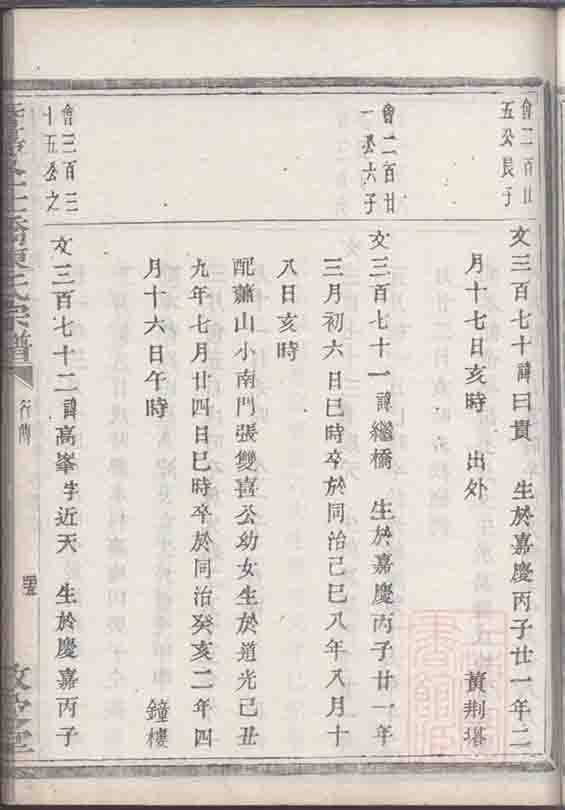 會二百廿
五公長子
文三百七十諱曰貴 生於嘉慶丙子廿一年二
月十七日亥時 出外 黃荆塔
會二百廿
一公六子
文三百七十一諱繼橋 生於嘉慶丙子廿一年
三月初六日巳時卒於同治己巳八年八月十
八日亥時
配蕭山小南門張雙喜公幼女生於道光己丑
九年七月廿四日巳時卒於同治癸亥二年四
月十六日午時 鐘樓
會三百三
十五公之
文三百七十二諱高峯字近天 生於慶嘉丙子
橋陳氏宗譜
行傳